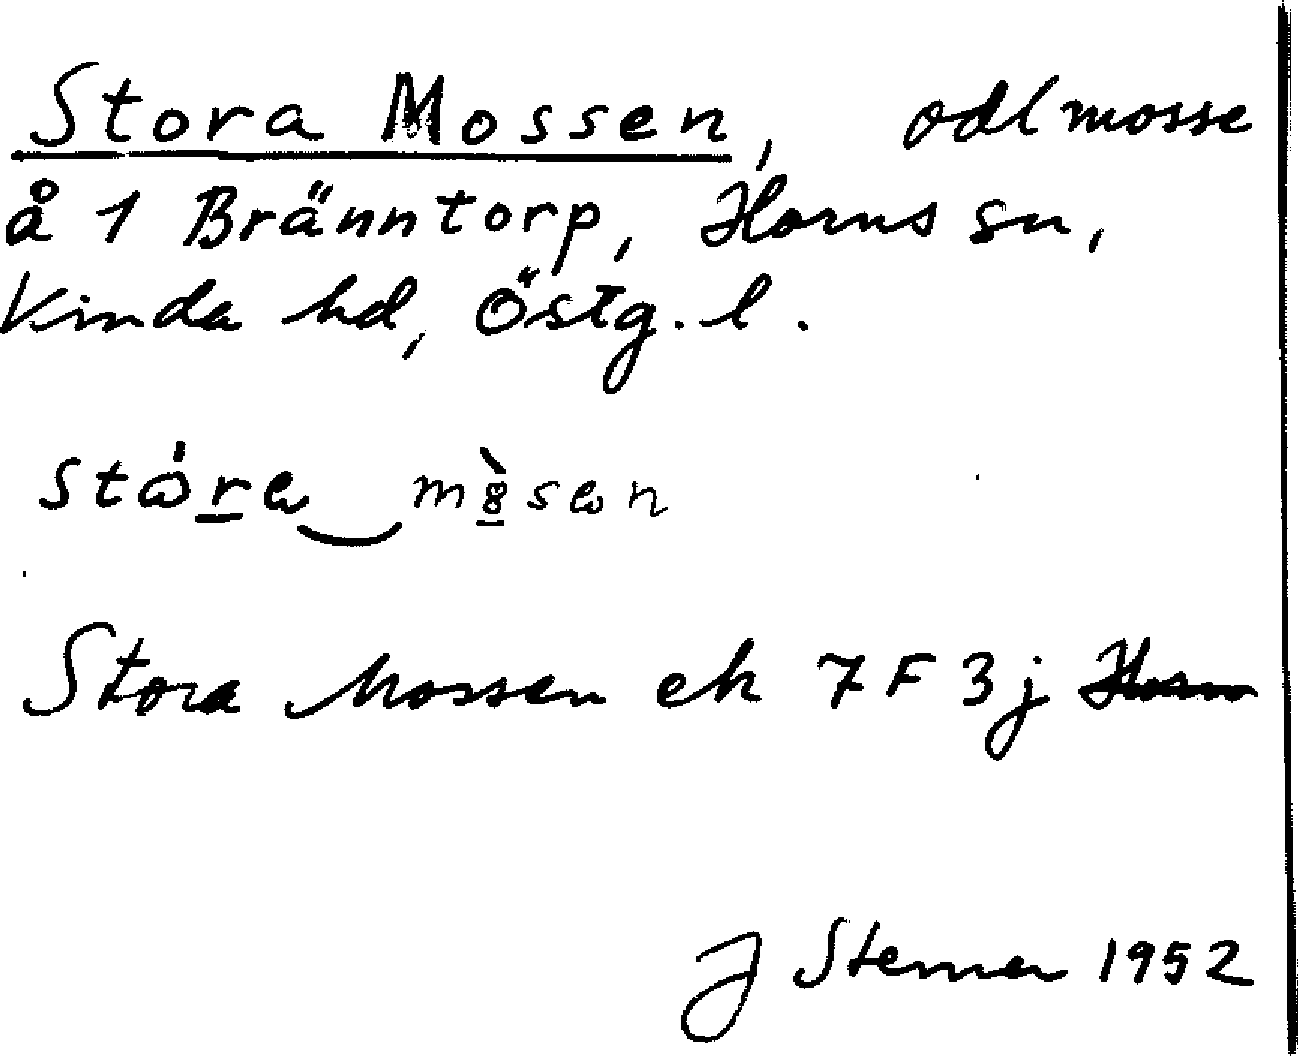 Stora Mossen, odl mosse
å 1 Bränntorp, Horns sn,
Kinda hd, Östg. l.
Stora Mossen ek 7 F 3 j Horn
J Sterner 1952